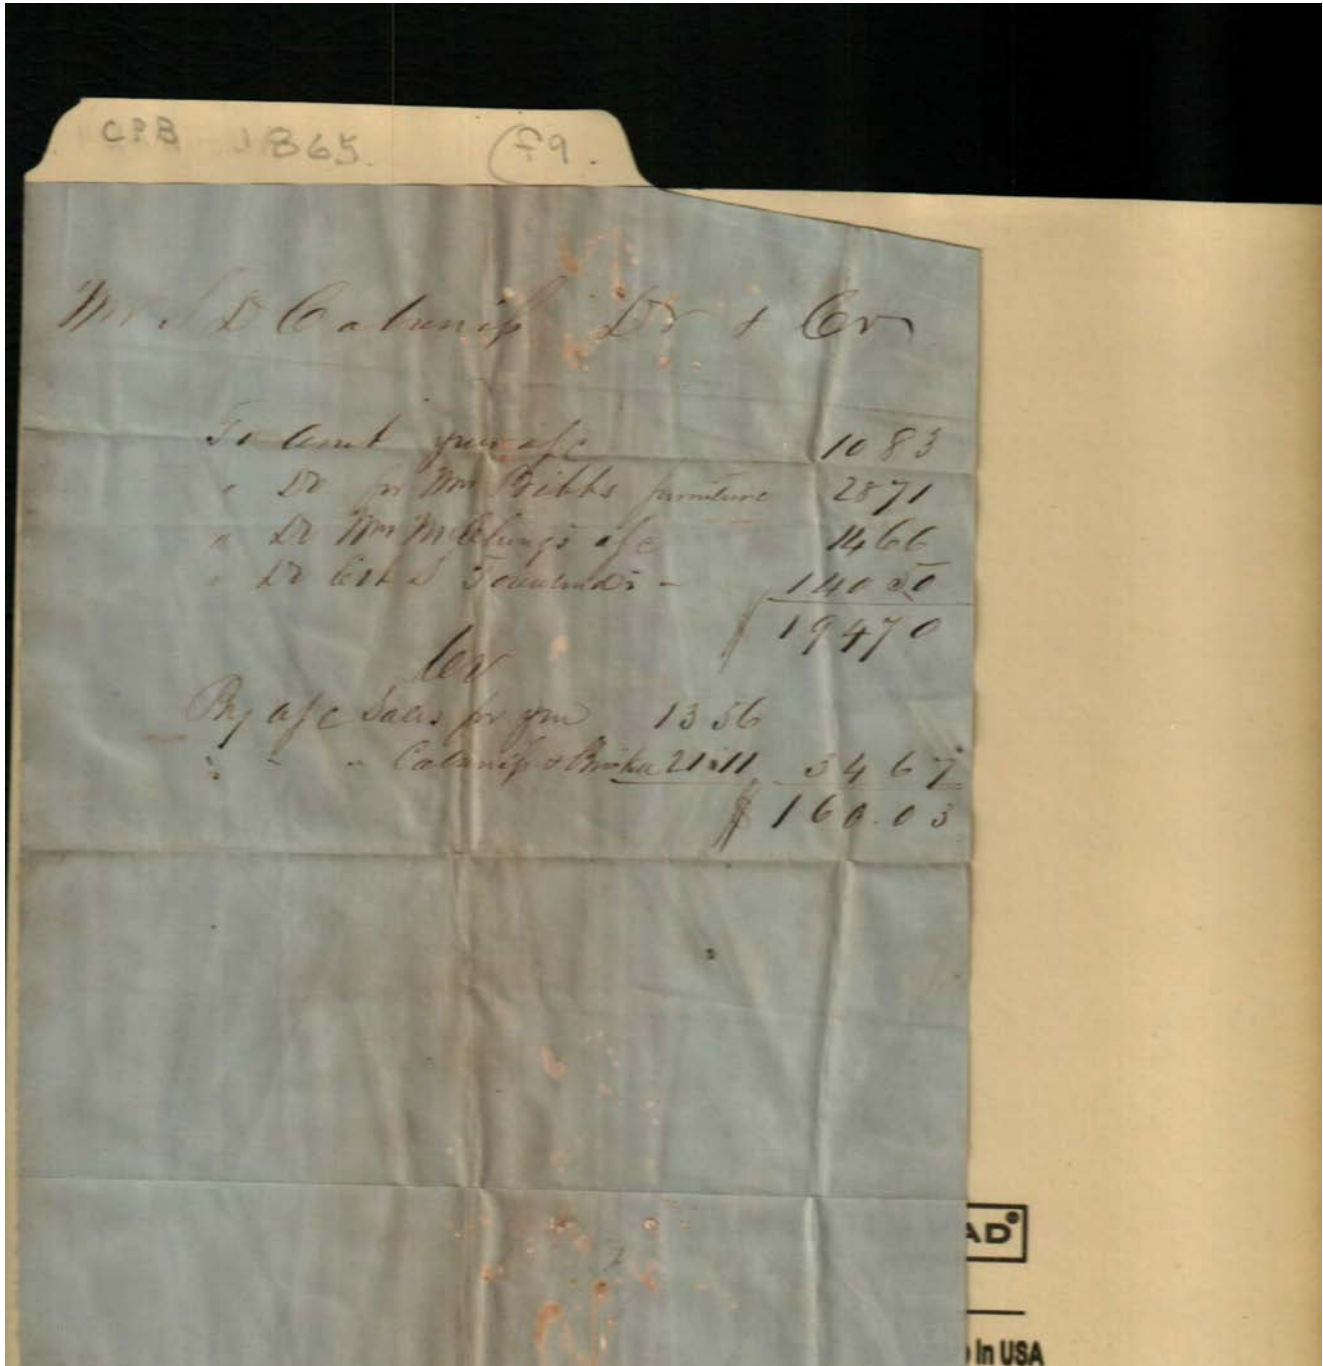 CPB 1865. (f9.
Mr S D Cabaniss Dr & Cr
To Amt your a/c 10 83
" Do for Wm Bibbs furniture 28 71
" Do Wm McClungs a/c 14 66
" Do Est S Townsends - 140 50
$ 194 70
Cr
By a/c Sales for you 13 56
" " " Cabaniss & 21.11 34 67
$ 160.03
AD®
In USA